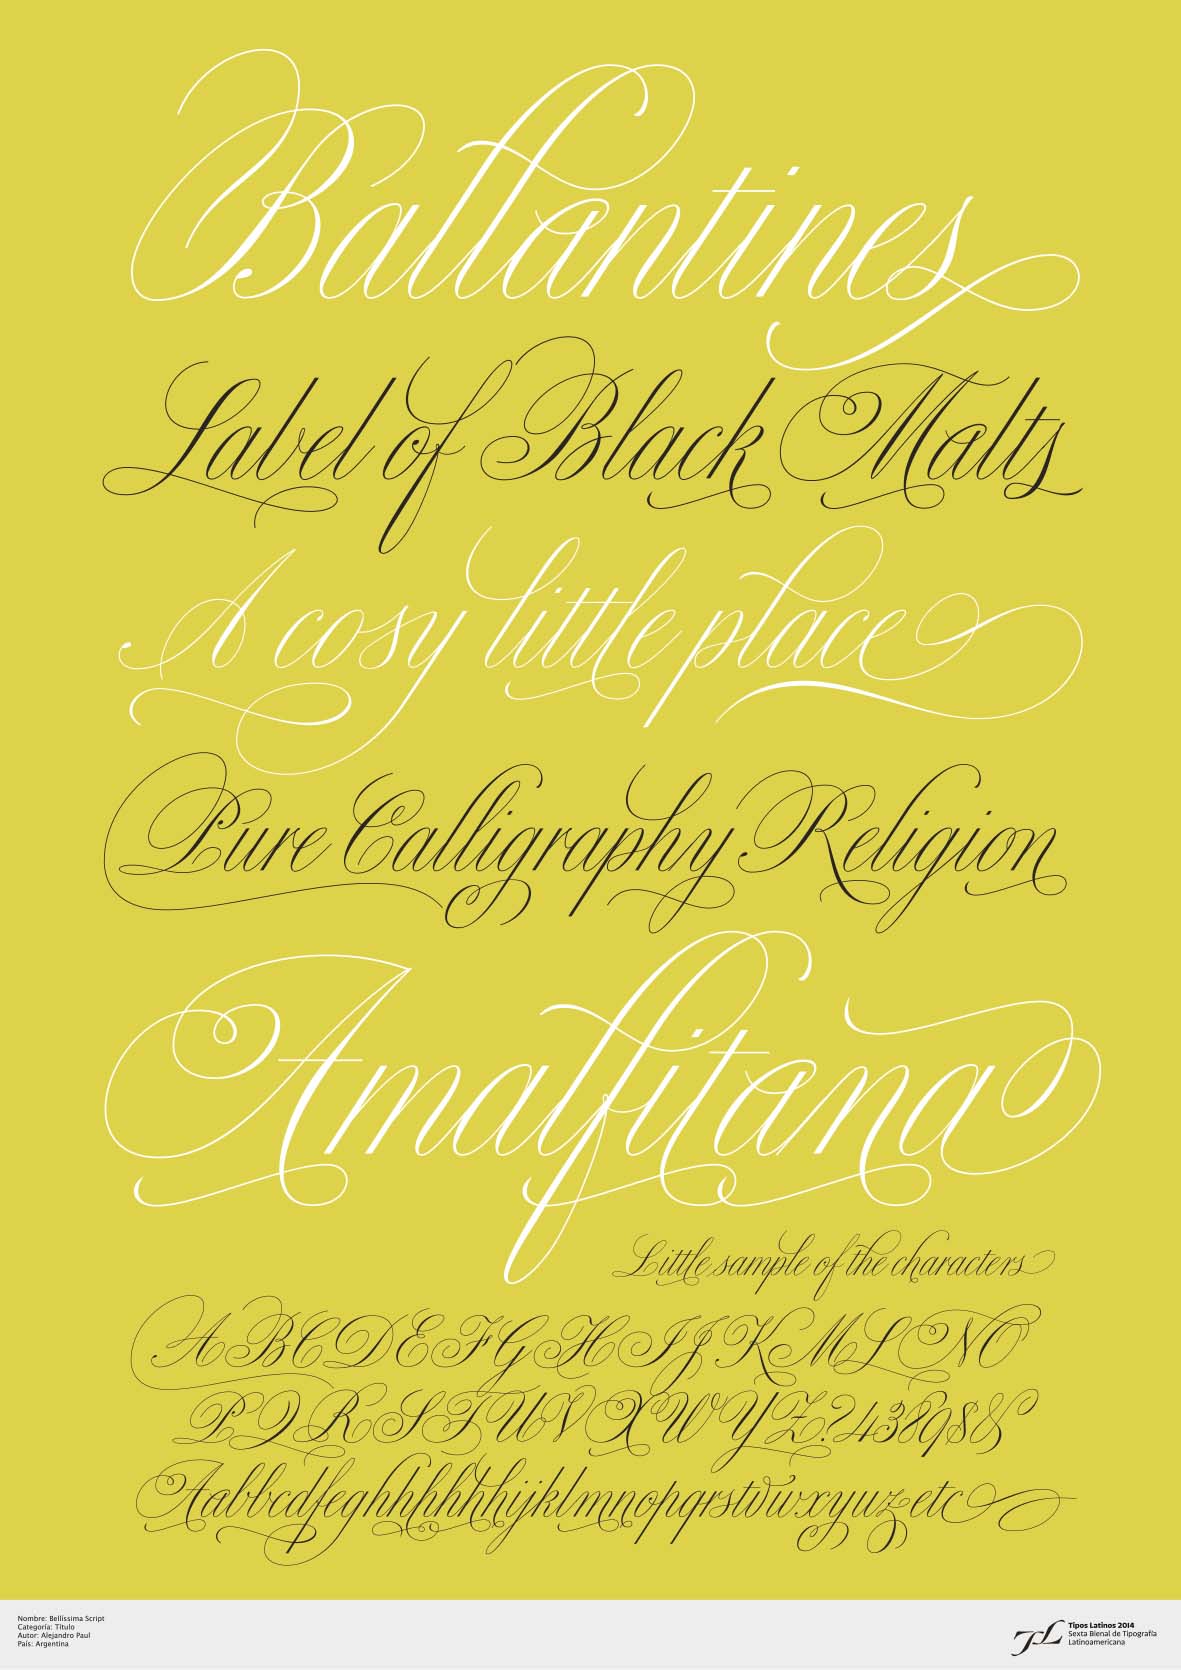 Ballantines
Label of Black Malts
A cosy little place
Pure Calligraphy Religion
Amalfitana
Little sample of the characters
ABCDEFGHIJKMLNO
PQRSTUVXWYZ?43898&
Aabbcdfeghhhhhhhijklmnopqrstvwxyuz etc
Nombre: Bellíssima Script
Categoría: Título
Autor: Alejandro Paul
País: Argentina
TL
Tipos Latinos 2014
Sexta Bienal de Tipografía
Latinoamericana